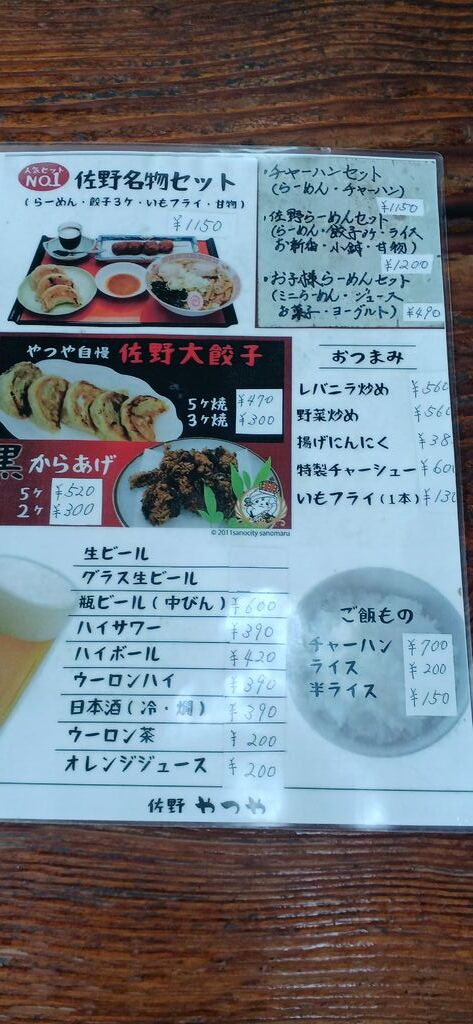 人気セット
NO.1
佐野名物セット
(らーめん・餃子3ケ・いもフライ・甘物)
¥1150
・チャーハンセット
(らーめん・チャーハン)
¥1150
・佐野らーめんセット
(らーめん・餃子3ケ・ライス
お新香・小鉢・甘物)
¥1200
・お子様らーめんセット
(ミニらーめん・ジュース
お菓子・ヨーグルト)
¥490
やつや自慢 佐野大餃子
5ケ焼 ¥470
3ケ焼 ¥300
黒 からあげ
5ケ ¥520
2ケ ¥300
© 2011sanocity sanomaru
おつまみ
レバニラ炒め ¥560
野菜炒め ¥560
揚げにんにく ¥38
特製チャーシュー ¥600
いもフライ(1本) ¥130
生ビール
グラス生ビール
瓶ビール(中びん) ¥600
ハイサワー ¥390
ハイボール ¥420
ウーロンハイ ¥390
日本酒(冷・燗) ¥390
ウーロン茶 ¥200
オレンジジュース ¥200
ご飯もの
チャーハン ¥700
ライス ¥200
半ライス ¥150
佐野 やつや